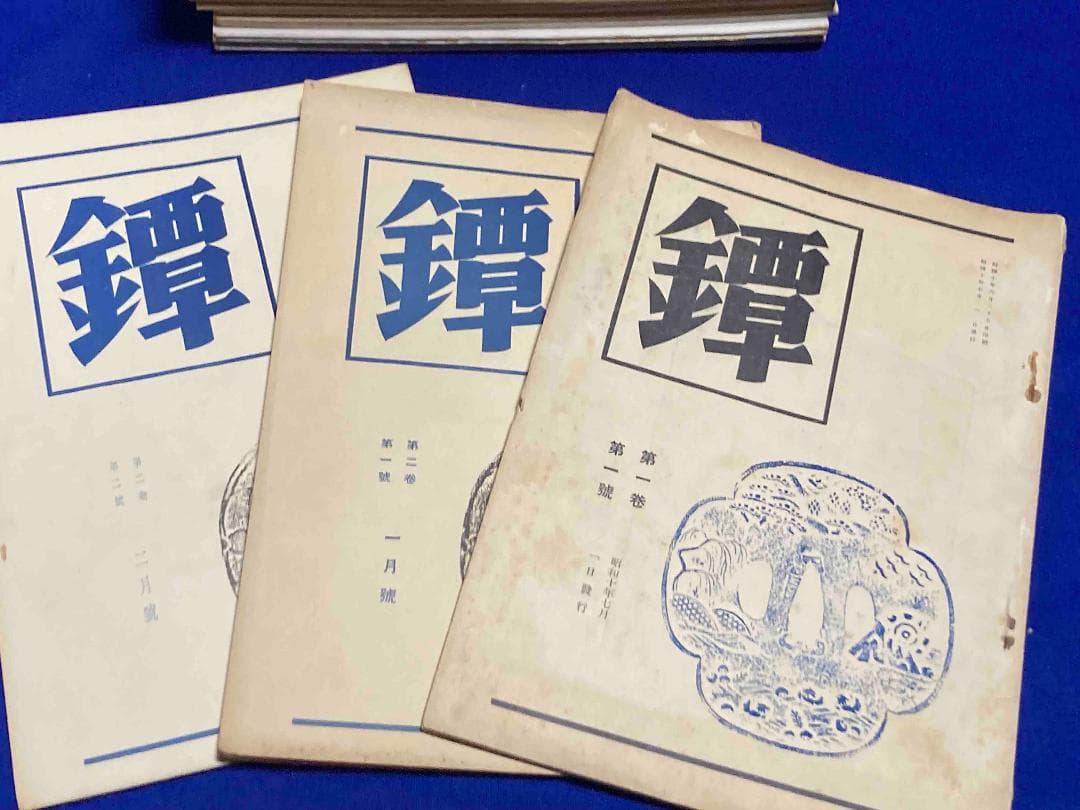 鐔
第二巻
第二號
二月號
鐔
第二巻
第一號
一月號
鐔
第一巻
第一號
昭和十年七月
一日發行